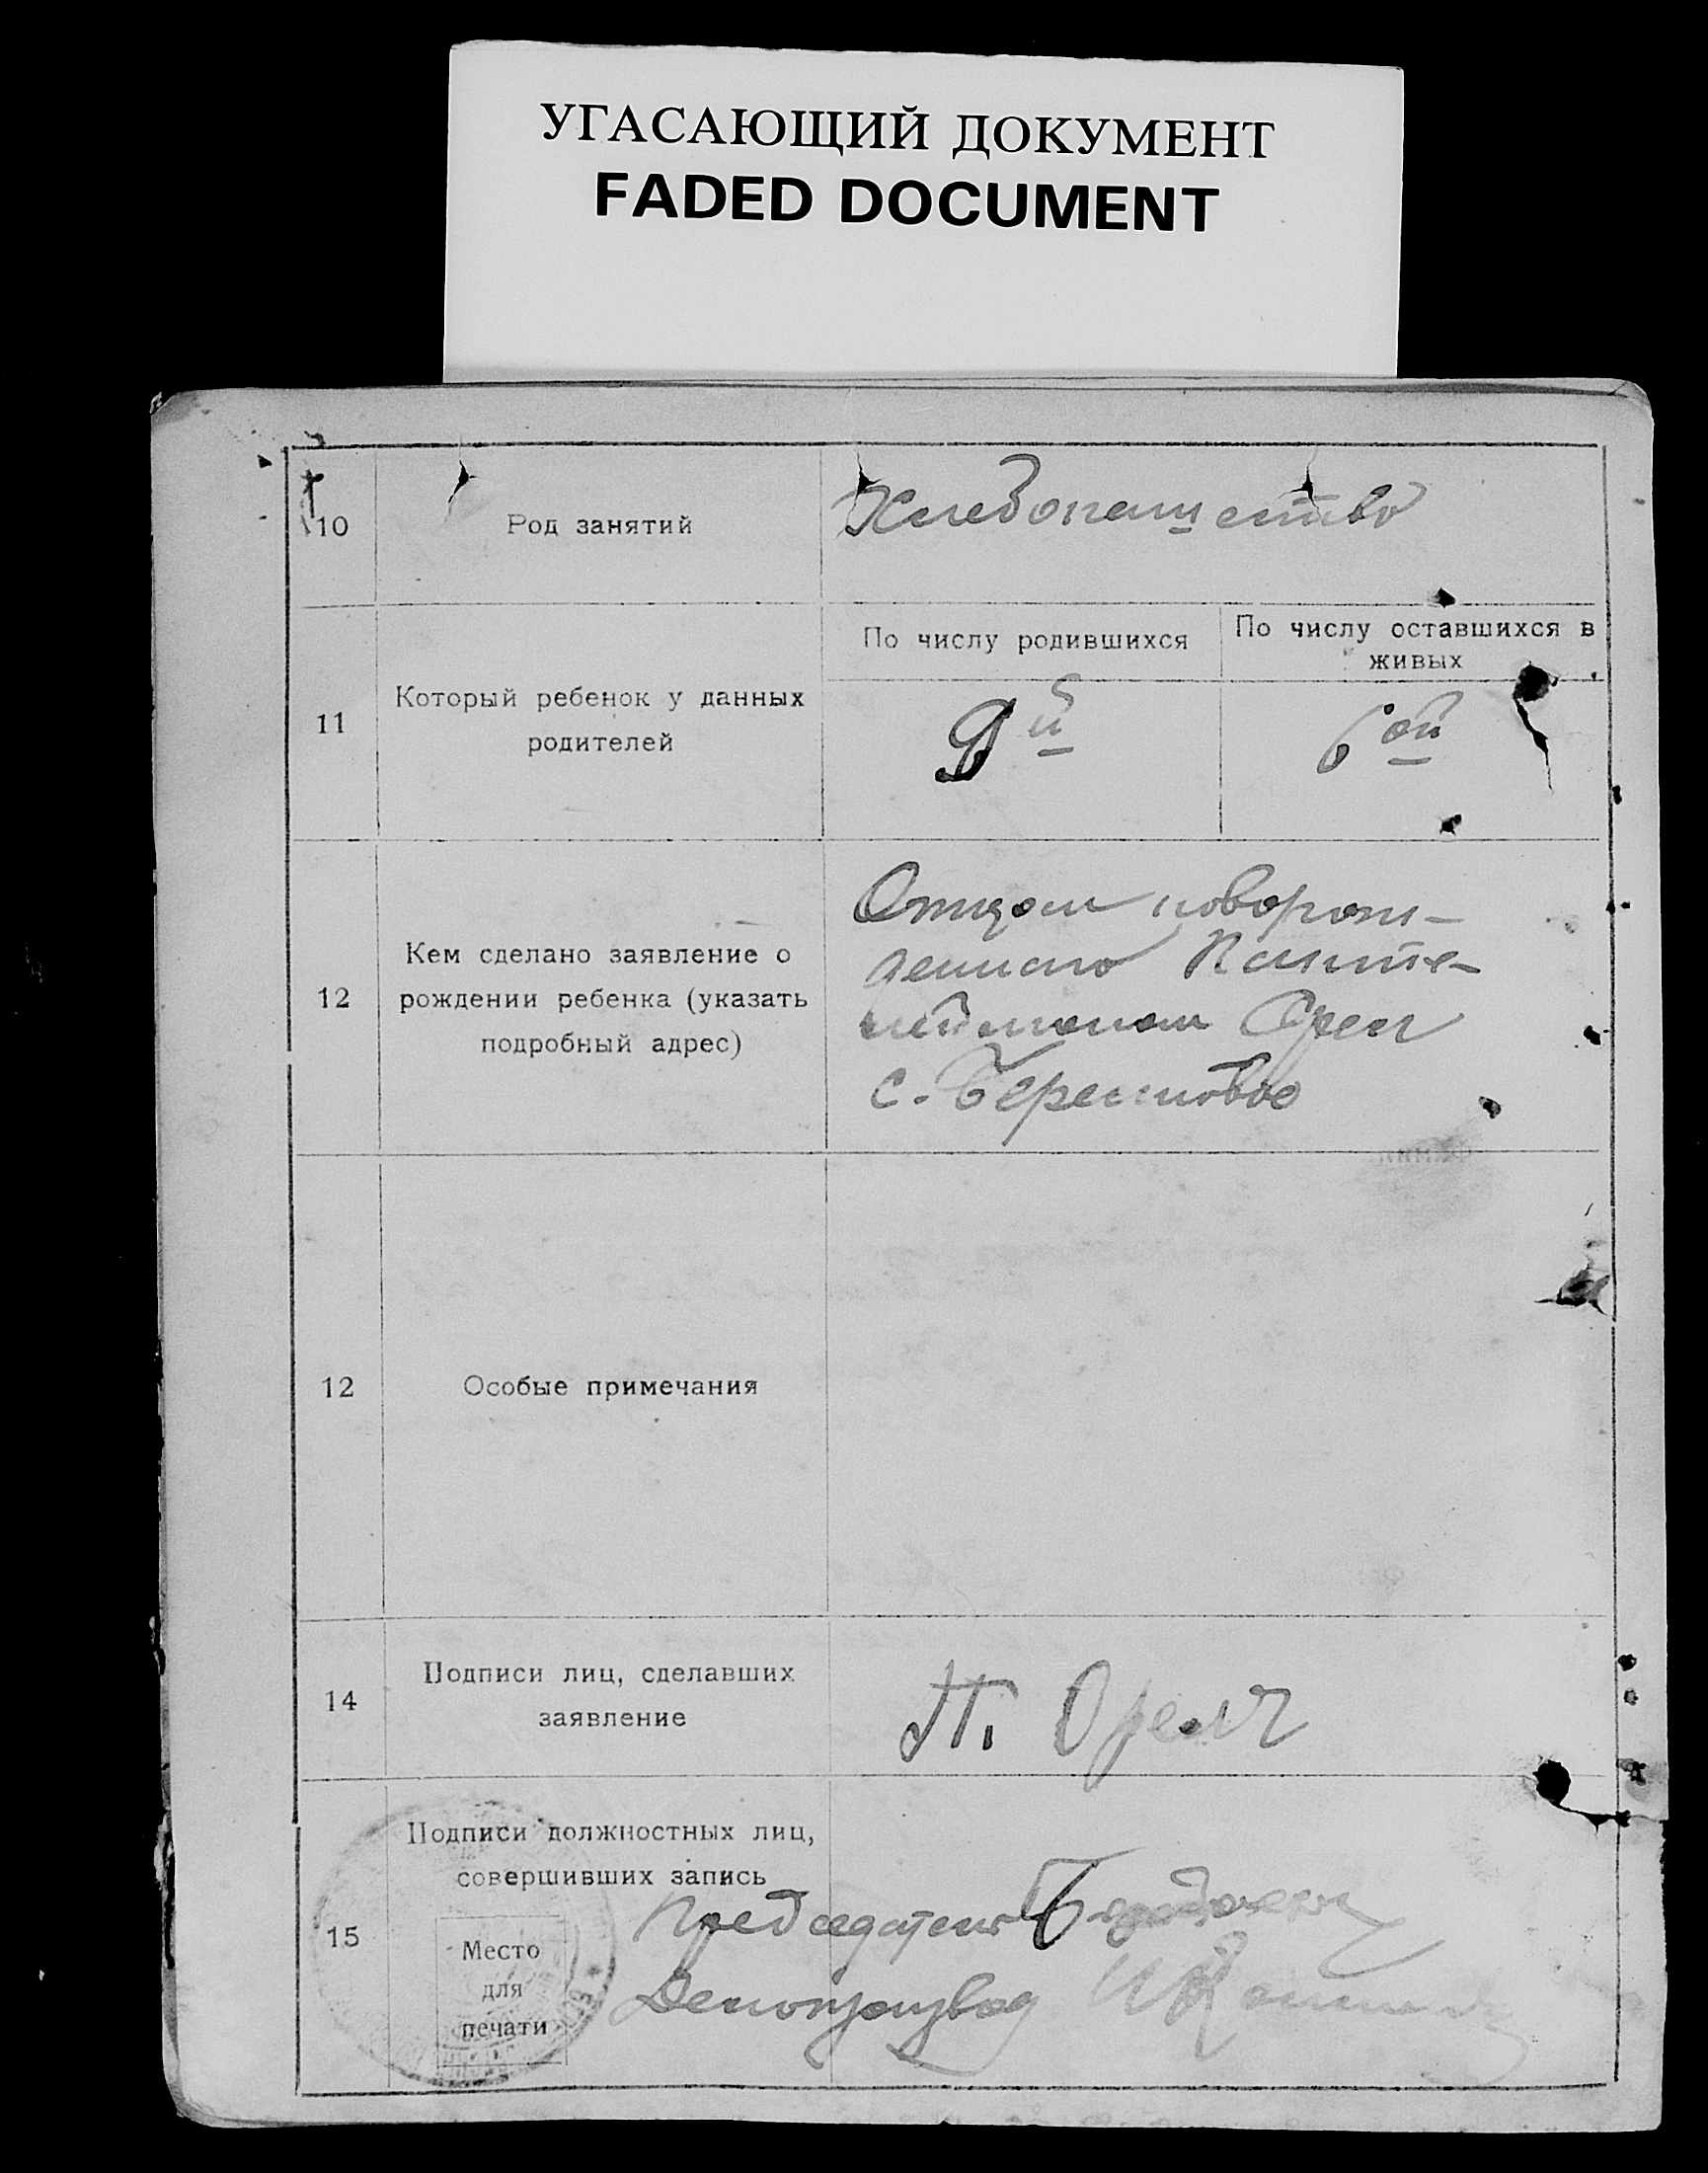 УГАСАЮЩИЙ ДОКУМЕНТ
FADED DOCUMENT
10
Род занятий
Хлебопашество
11
Который ребенок у данных
родителей
По числу родившихся
По числу оставшихся в
живых
9й
6ой
12
Кем сделано заявление о
рождении ребенка (указать
подробный адрес)
Отцом новорож-
денного Панте-
леймоном Орел
с. Берестовое
12
Особые примечания
14
Подписи лиц, сделавших
заявление
П. Орел
15
Подписи должностных лиц,
совершивших запись
Место
для
печати
Председатель
Делопроизвод